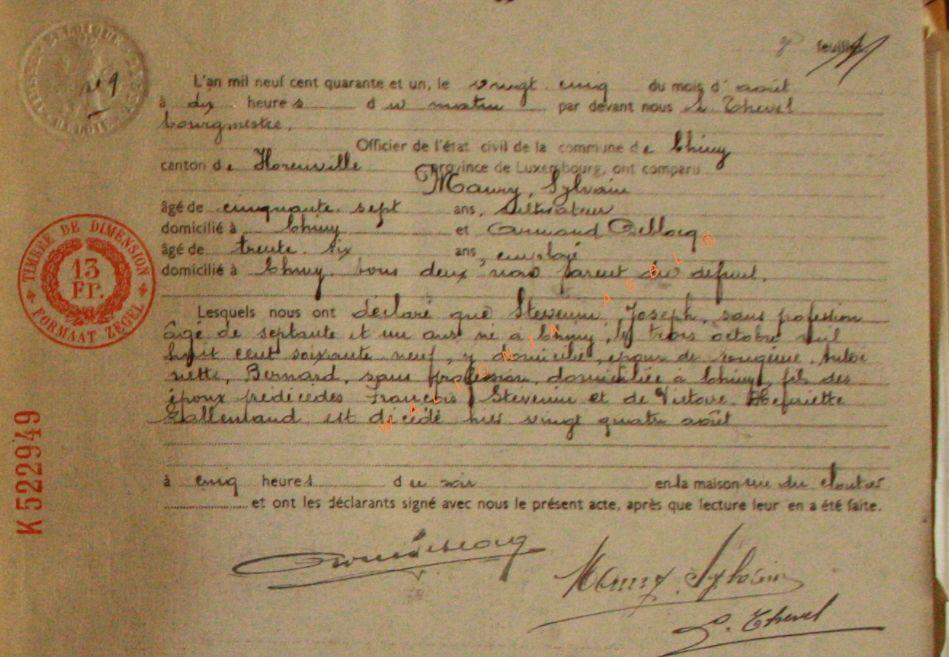 feuillet
BELGIQUE
BELGIË
L'an mil neuf cent quarante et un, le vingt cinq du mois d'août
à dix heures du matin par devant nous Thevel
bourgmestre,
Officier de l'état civil de la commune de Chiny
canton de Florenville province de Luxembourg, ont comparu
Maury, Sylvain
âgé de cinquante sept ans, cultivateur
domicilié à Chiny et Armand
âgé de trente six ans, employé
domicilié à Chiny, tous deux non parent du défunt.
TIMBRE DE DIMENSION
13
Fr.
FORMAAT ZEGEL
Lesquels nous ont déclaré que Stevenin Joseph, sans profession
âgé de septante et un ans né à Chiny, le trois octobre mil
huit cent soixante neuf, y domicilié, époux de
nette, Bernard, sans profession, domiciliée à Chiny, fils des
époux prédécédés François Stevenin et de Victoire Henriette
Lallemand est décédé hier vingt quatre août
WALLONIA ASBL ©
K 522949
à cinq heures du soir en la maison rue du
et ont les déclarants signé avec nous le présent acte, après que lecture leur en a été faite.
Maury Sylvain
Thevel